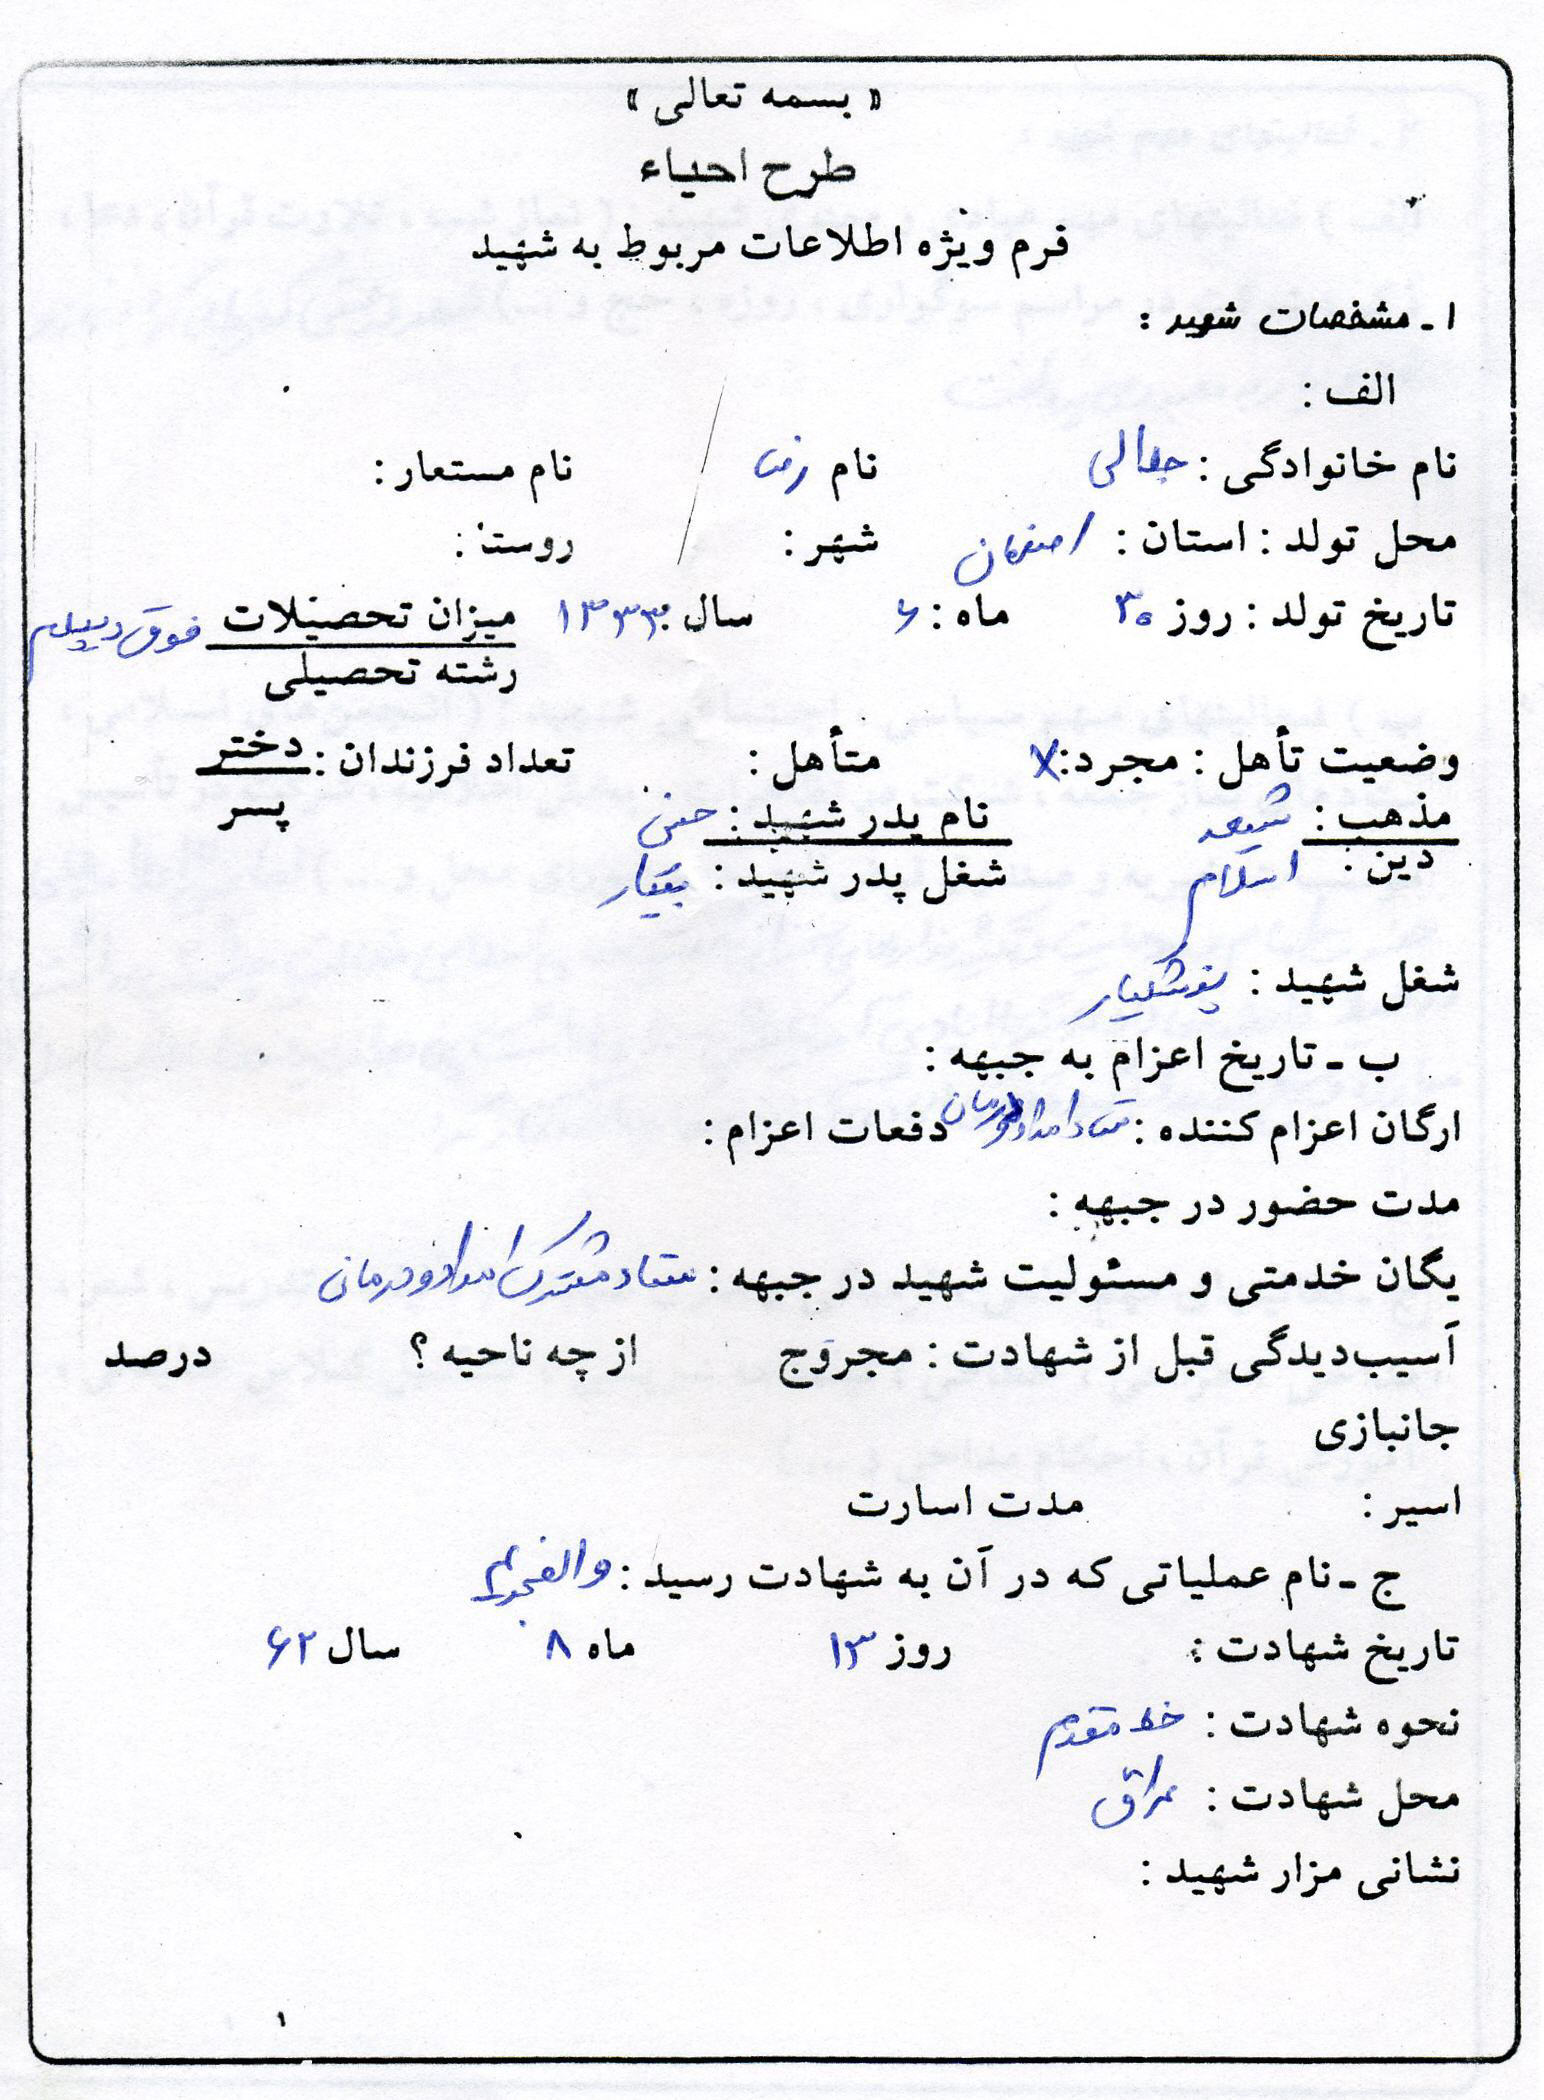 « بسمه تعالی »
طرح احیاء
فرم ویژه اطلاعات مربوط به شهید
۱ ـ مشخصات شهید :
الف :
نام خانوادگی : جلالی نام نام مستعار :
محل تولد : استان : اصفهان شهر : روستا :
تاریخ تولد : روز ۳۰ ماه : ۶ سال : ۱۳۳۳ میزان تحصیلات فوق دیپلم
رشته تحصیلی
وضعیت تأهل : مجرد : X متأهل : تعداد فرزندان : دختر
پسر
مذهب : شیعه نام پدر شهید :
دین : اسلام شغل پدر شهید :
شغل شهید : پزشکیار
ب ـ تاریخ اعزام به جبهه :
ارگان اعزام کننده : ستاد امداد و درمان دفعات اعزام :
مدت حضور در جبهه :
یگان خدمتی و مسئولیت شهید در جبهه : ستاد مشترک امداد و درمانی
آسیب‌دیدگی قبل از شهادت : مجروح از چه ناحیه ؟ درصد
جانبازی
اسیر : مدت اسارت
ج ـ نام عملیاتی که در آن به شهادت رسید : والفجر ۴
تاریخ شهادت : روز ۱۳ ماه ۸ سال ۶۲
نحوه شهادت : خط مقدم
محل شهادت : عراق
نشانی مزار شهید :
۱